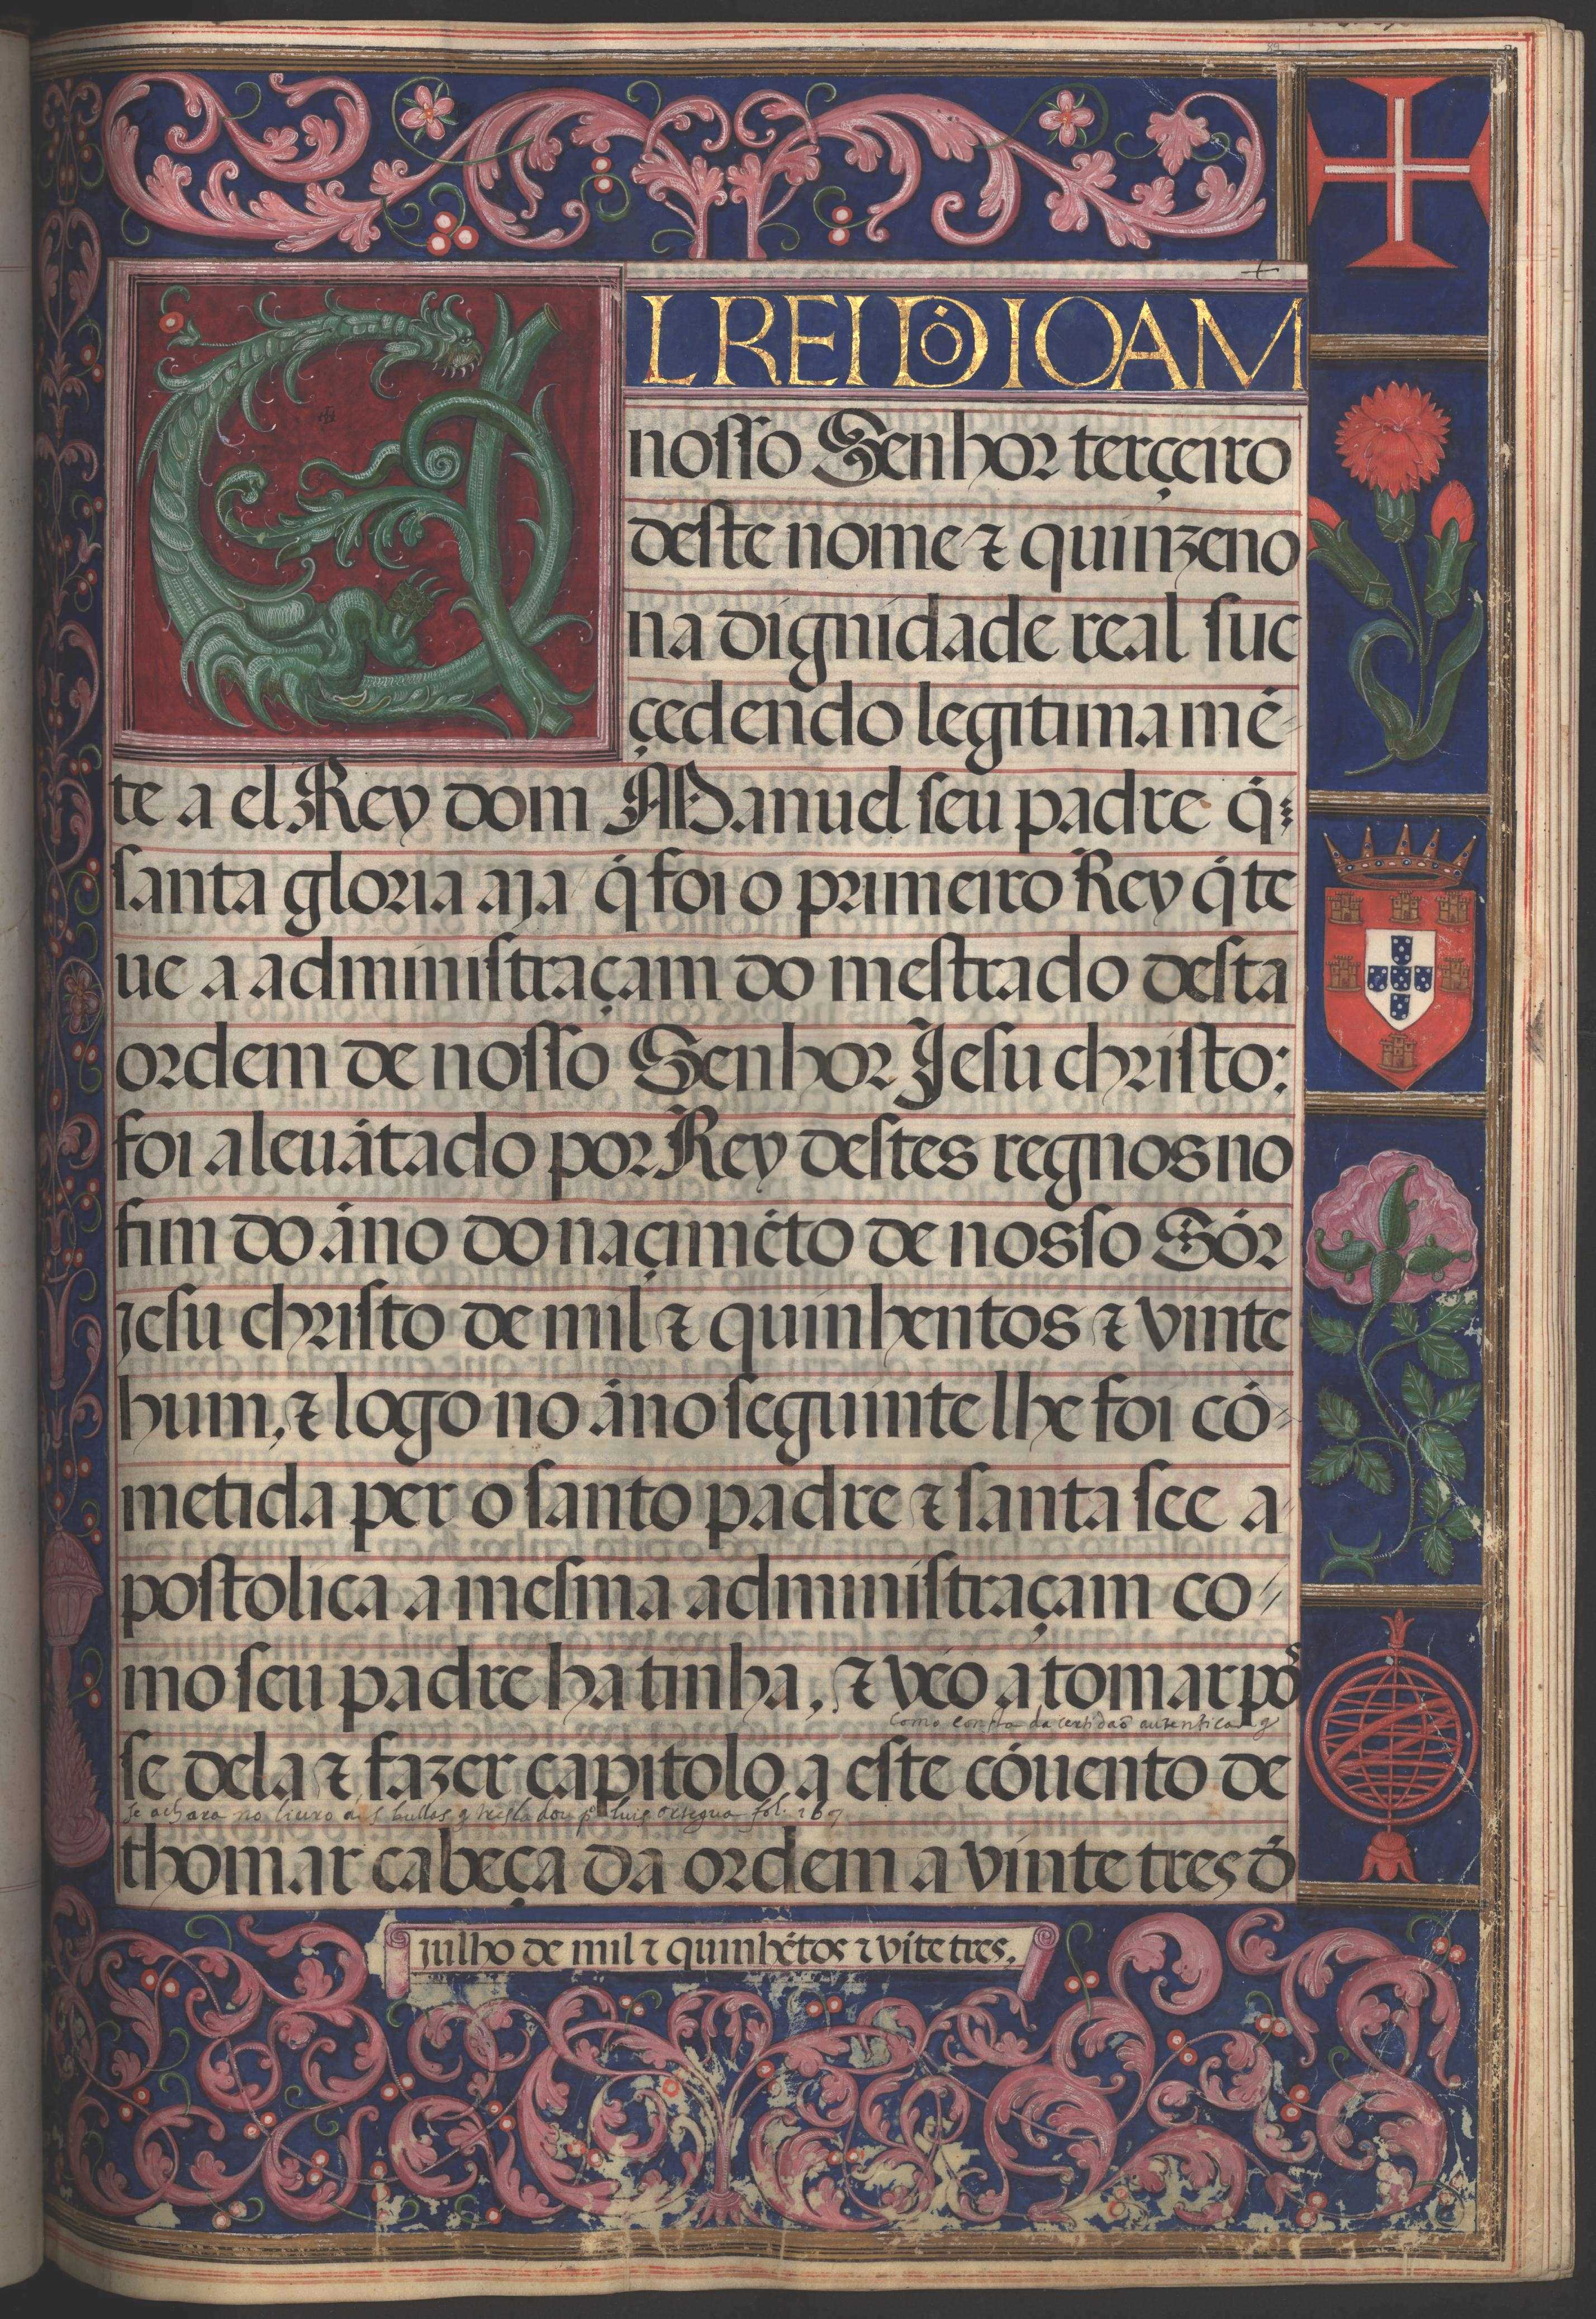 EL REI DÕ IOAM
nosso Senhor terçeiro
deste nome ⁊ quinzeno
na dignidade real suc
çedendo legitimamẽ-
te a el Rey dom Manuel seu padre q̃
santa gloria aja q̃ foi o primeiro Rey q̃ te
ue a administraçam do mestrado desta
ordem de nosso Senhor Jesu christo:
foi aleuãtado por Rey destes regnos no
fim do ãno do naçimẽto de nosso Sõr
jesu christo de mil ⁊ quinhentos ⁊ vinte
hum, ⁊ logo no ãno seguinte lhe foi cõ-
metida per o santo padre ⁊ santa see a-
postolica a mesma administraçam co-
mo seu padre ha tinha, ⁊ vẽo a tomar pos
como consta da certidaõ autentica q̃
se dela ⁊ fazer capitolo a este cõuento de
se achara no liuro das bullas q̃ tresladou pº luis fol. 167
thomar cabeça da ordem a vinte tres d̃
julho de mil ⁊ quinhẽtos ⁊ vĩte tres.